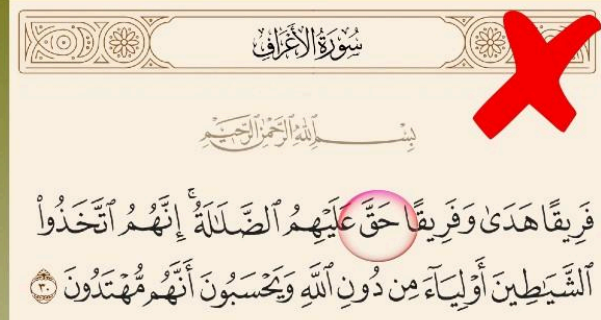 سُورَةُ الْأَعْرَافِ
بِسْمِ اللَّهِ الرَّحْمَٰنِ الرَّحِيمِ
فَرِيقًا هَدَىٰ وَفَرِيقًا حَقَّ عَلَيْهِمُ ٱلضَّلَٰلَةُ ۚ إِنَّهُمُ ٱتَّخَذُوا۟
ٱلشَّيَٰطِينَ أَوْلِيَآءَ مِن دُونِ ٱللَّهِ وَيَحْسَبُونَ أَنَّهُم مُّهْتَدُونَ ٣٠